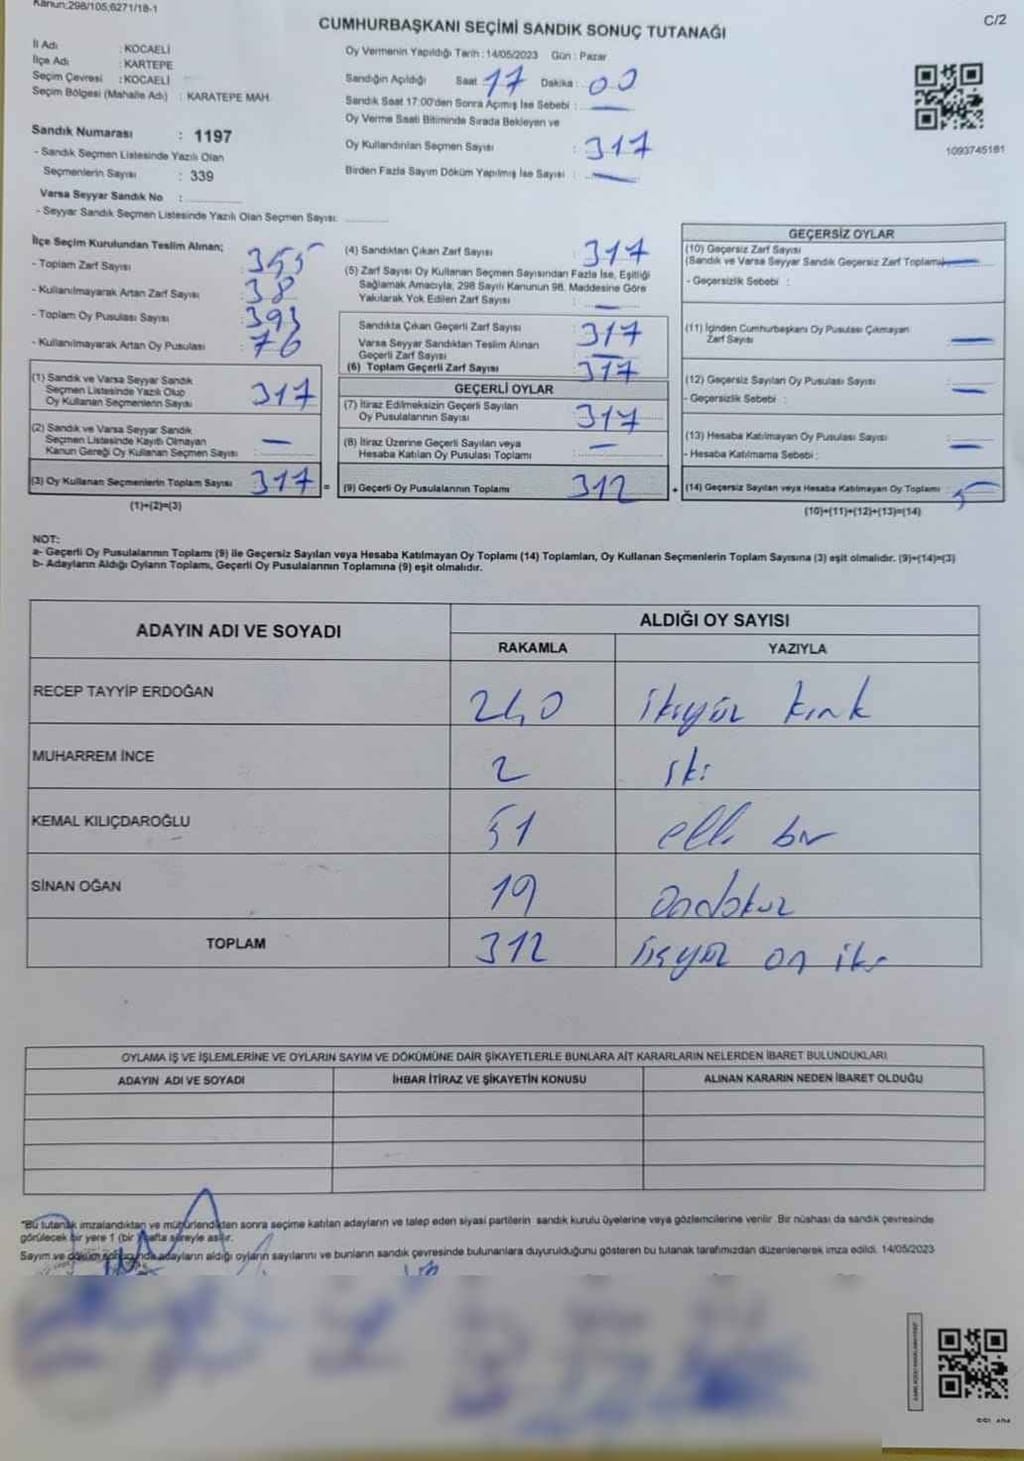 Kanun:298/105;6271/18-1
C/2
CUMHURBAŞKANI SEÇİMİ SANDIK SONUÇ TUTANAĞI
İl Adı : KOCAELİ
İlçe Adı : KARTEPE
Seçim Çevresi : KOCAELİ
Seçim Bölgesi (Mahalle Adı) : KARATEPE MAH.
Sandık Numarası : 1197
- Sandık Seçmen Listesinde Yazılı Olan
Seçmenlerin Sayısı : 339
Varsa Seyyar Sandık No :
- Seyyar Sandık Seçmen Listesinde Yazılı Olan Seçmen Sayısı:
Oy Vermenin Yapıldığı Tarih : 14/05/2023 Gün : Pazar
Sandığın Açıldığı Saat 17 Dakika : 00
Sandık Saat 17:00'den Sonra Açılmış İse Sebebi : —
Oy Verme Saati Bitiminde Sırada Bekleyen ve
Oy Kullandırılan Seçmen Sayısı : 317
Birden Fazla Sayım Döküm Yapılmış İse Sayısı : —
1093745181
İlçe Seçim Kurulundan Teslim Alınan;
- Toplam Zarf Sayısı : 355
- Kullanılmayarak Artan Zarf Sayısı : 38
- Toplam Oy Pusulası Sayısı : 393
- Kullanılmayarak Artan Oy Pusulası : 76
(1) Sandık ve Varsa Seyyar Sandık
Seçmen Listesinde Yazılı Olup
Oy Kullanan Seçmenlerin Sayısı 317
(2) Sandık ve Varsa Seyyar Sandık
Seçmen Listesinde Kayıtlı Olmayan
Kanun Gereği Oy Kullanan Seçmen Sayısı : —
(3) Oy Kullanan Seçmenlerin Toplam Sayısı 317 =
(1)+(2)=(3)
(4) Sandıktan Çıkan Zarf Sayısı : 317
(5) Zarf Sayısı Oy Kullanan Seçmen Sayısından Fazla İse, Eşitliği
Sağlamak Amacıyla, 298 Sayılı Kanunun 98. Maddesine Göre
Yakılarak Yok Edilen Zarf Sayısı : —
Sandıkta Çıkan Geçerli Zarf Sayısı : 317
Varsa Seyyar Sandıktan Teslim Alınan
Geçerli Zarf Sayısı : —
(6) Toplam Geçerli Zarf Sayısı : 317
GEÇERLİ OYLAR
(7) İtiraz Edilmeksizin Geçerli Sayılan
Oy Pusulalarının Sayısı : 317
(8) İtiraz Üzerine Geçerli Sayılan veya
Hesaba Katılan Oy Pusulası Toplamı : —
(9) Geçerli Oy Pusulalarının Toplamı 312 +
GEÇERSİZ OYLAR
(10) Geçersiz Zarf Sayısı
(Sandık ve Varsa Seyyar Sandık Geçersiz Zarf Toplamı) —
- Geçersizlik Sebebi :
(11) İçinden Cumhurbaşkanı Oy Pusulası Çıkmayan
Zarf Sayısı : —
(12) Geçersiz Sayılan Oy Pusulası Sayısı : —
- Geçersizlik Sebebi :
(13) Hesaba Katılmayan Oy Pusulası Sayısı : —
- Hesaba Katılmama Sebebi :
(14) Geçersiz Sayılan veya Hesaba Katılmayan Oy Toplamı : 5
(10)+(11)+(12)+(13)=(14)
NOT:
a- Geçerli Oy Pusulalarının Toplamı (9) ile Geçersiz Sayılan veya Hesaba Katılmayan Oy Toplamı (14) Toplamları, Oy Kullanan Seçmenlerin Toplam Sayısına (3) eşit olmalıdır. (9)+(14)=(3)
b- Adayların Aldığı Oyların Toplamı, Geçerli Oy Pusulalarının Toplamına (9) eşit olmalıdır.
ADAYIN ADI VE SOYADI
ALDIĞI OY SAYISI
RAKAMLA YAZIYLA
RECEP TAYYİP ERDOĞAN 240 ikiyüz kırk
MUHARREM İNCE 2 iki
KEMAL KILIÇDAROĞLU 51 elli bir
SİNAN OĞAN 19 Ondokuz
TOPLAM 312 üçyüz on iki
OYLAMA İŞ VE İŞLEMLERİNE VE OYLARIN SAYIM VE DÖKÜMÜNE DAİR ŞİKAYETLERLE BUNLARA AİT KARARLARIN NELERDEN İBARET BULUNDUKLARI
ADAYIN ADI VE SOYADI İHBAR İTİRAZ VE ŞİKAYETİN KONUSU ALINAN KARARIN NEDEN İBARET OLDUĞU
*Bu tutanak imzalandıktan ve mühürlendikten sonra seçime katılan adayların ve talep eden siyasi partilerin sandık kurulu üyelerine veya gözlemcilerine verilir. Bir nüshası da sandık çevresinde
görülecek bir yere 1 (bir) hafta süreyle asılır.
Sayım ve döküm sonucunda adayların aldığı oyların sayılarını ve bunların sandık çevresinde bulunanlara duyurulduğunu gösteren bu tutanak tarafımızdan düzenlenerek imza edildi. 14/05/2023